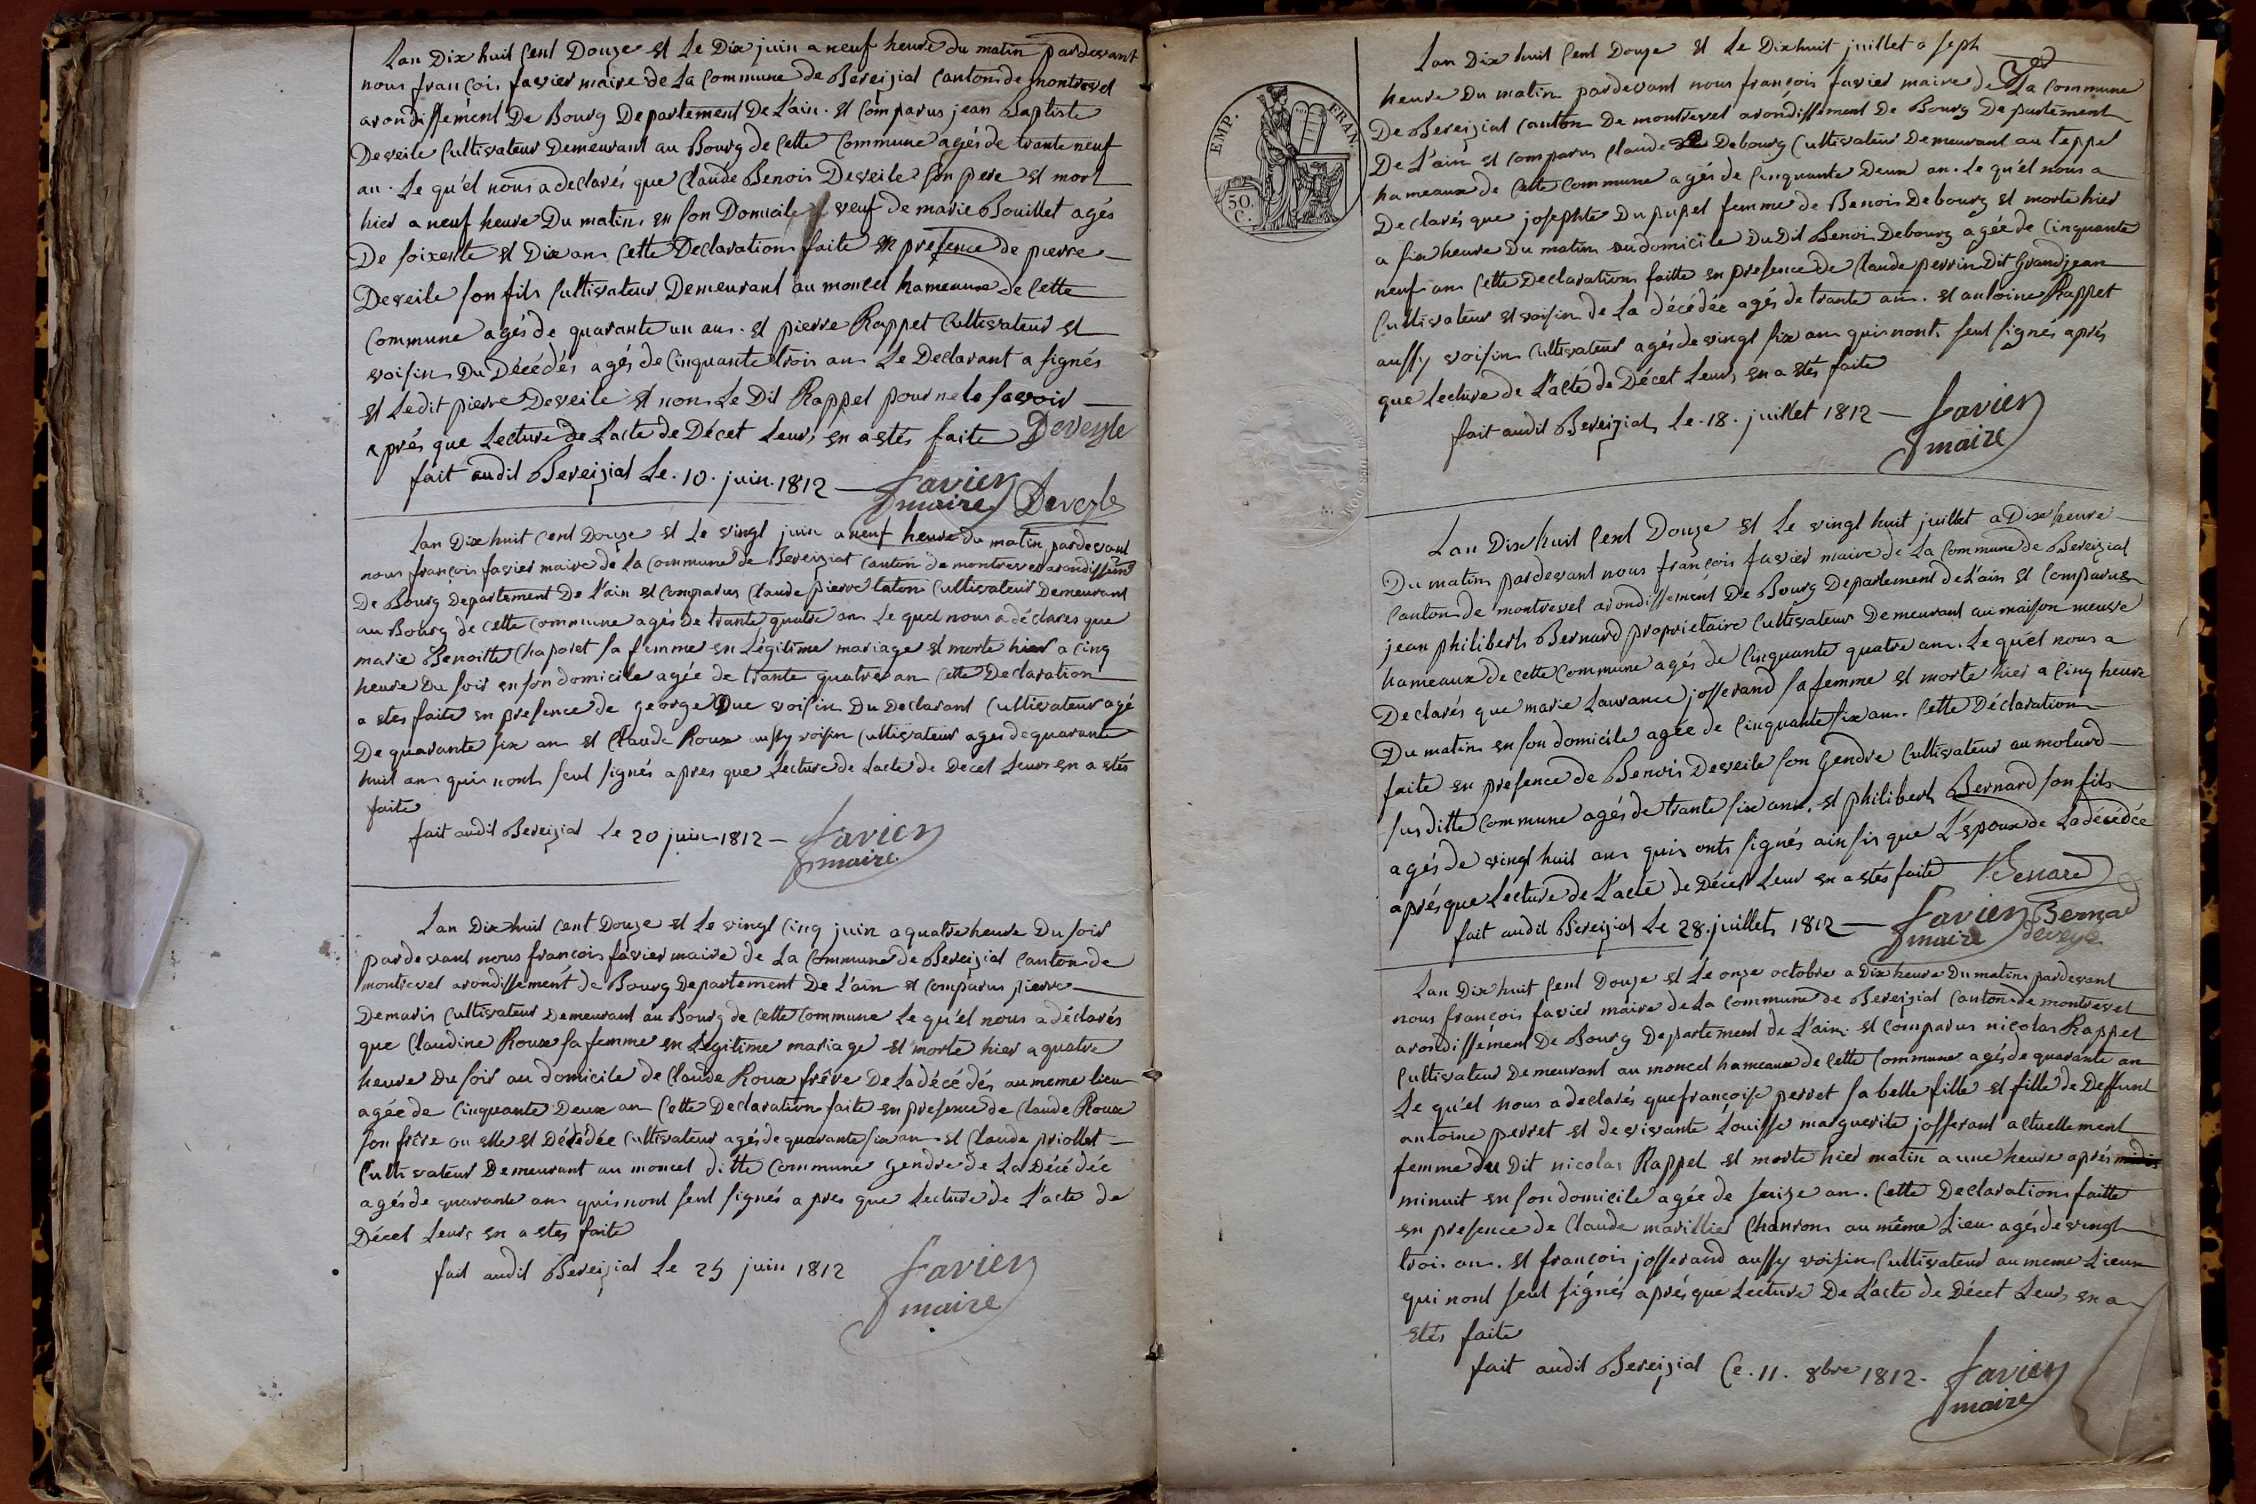 Lan Dix huit Cent Douze et Le Dix juin a neuf heure du matin pardevant
nous françois favier maire de La Commune de Bereiziat Canton de montrevel
arondissement De Bourg Departement De L'ain. et Comparus jean Baptiste
Deveile Cultivateur Demeurant au Bourg de Cette Commune agés de trante neuf
an. Le qu'el nous a declarés que Claude Benois Deveile son pere et mort
hier a neuf heure Du matin en son Domicile veuf de marie Bouillet agés
De soixente et Dix an Cette Declaration faite en presence de pierre
Deveile son fils Cultivateur Demeurant au moncel hameaux de Cette
Commune agés de quarante un an. et pierre Rappet Cultivateur et
voisin Du Décédés agés de Cinquante trois an Le Declarant a signés
et Ledit pierre Deveile et non Le Dit Rappet pour ne le savoir
aprés que Lecture de Lacte de Décet Leurs en a etés faite Deveyle
fait audit Bereiziat Le. 10. juin. 1812 favier
maire Deveyle
Lan Dix huit Cent Douze et Le vingt juin a neuf heure du matin pardevant
nous françois favier maire de la Commune de Bereiziat Canton de montrevel arondissem
De Bourg Departement De L'ain et Comparus Claude pierre taton Cultivateur Demeurant
au Bourg de Cette Commune agés De trante quatre an Le quel nous a déclares que
marie Benoitte Chaparet sa femme en Légitime mariage et morte hier a Cinq
heure Du soir en son domicile agée de trante quatre an Cette Declaration
a etes faite en présence de george Due voisin Du Declarant Cultivateur agé
De quarante six an et Claude Roux aussy voisin Cultivateur ages de quarante
huit an qui nont seut signés apres que Lecture de Lacte de Decet Leurs en a etés
faite
fait audit Bereiziat Le 20 juin 1812 favier
maire
Lan Dix huit Cent Douze et Le vingt Cinq juin a quatre heure Du soir
pardevant nous françois favier maire de La Commune de Bereiziat Canton de
montrevel arondissement de Bourg Departement De L'ain et Comparus pierre
Demaris Cultivateur Demeurant au Bourg de Cette Commune Le qu'el nous a déclarés
que Claudine Roux sa femme en Legitime mariage et morte hier a quatre
heure Du soir au domicile de Claude Roux frêre De La décédés au meme lieu
agée de Cinquante Deux an Cette Declaration faite en presence de Claude Roux
son frêre ou elle et Décédée Cultivateur agés de quarante six an et Claude priollet
Cultivateur Demeurant au moncel ditte Commune gendre de La Décédée
agés de quarante an qui nont seut signés apres que Lecture de L'acte de
Décet Leurs en a etes faite
fait audit Bereiziat Le 25 juin 1812 favier
maire
EMP. FRAN.
50.
C.
Lan Dix huit Cent Douze et Le Dix huit juillet a seph
heure Du matin pardevant nous françois favier maire de La Commune
De Bereiziat Canton De montrevel arondissement De Bourg Departement
De L'ain et Comparus Claude Debourg Cultivateur Demeurant au teppet
hameaux de Cette Commune agés de Cinquante Deux an. Le qu'el nous a
Declarés que josephte Dupupet femme de Benois Debourg et morte hier
a six heure Du matin au domicile Du Dit Benoi Debourg agée de Cinquante
neuf an Cette Declaration faitte en presence de Claude perrin Dit Grandjean
Cultivateur et voisin de La décédée agés de trante an. et antoine Rappet
aussy voisin Cultivateur agés de vingt six an qui nont seut signés aprés
que Lecture de L'acte de Décet Leurs en a etés faite
fait audit Bereiziat Le. 18. juillet 1812 favier
maire
Lan Dix huit Cent Douze et Le vingt huit juillet a Dix heure
Du matin pardevant nous françois favier maire de La Commune de Bereiziat
Canton de montrevel arondissement De Bourg Departement de L'ain et Comparus
jean philibert Bernard proprietaire Cultivateur Demeurant au maison neuve
hameaux de cette Commune agés de Cinquante quatre an. Le qu'el nous a
Declarés que marie Laurance josserand sa femme et morte hier a Cinq heure
Du matin en son domicile agée de Cinquante six an. Cette Déclaration
faite en presence de Benois Deveile son Gendre Cultivateur au molard
sus ditte Commune agés de trante six ans. et philibert Bernard son fils
agés de vingt huit an qui onts signés ainsis que L'epoux de La décédée
aprés que Lecture de L'acte de Décet Leur en a etés faite Benard
fait audit Bereiziat Le 28. juillet 1812 favier Bernad
maire deveyle
Lan Dix huit Cent Douze et Le onze octobre a Dix heure Du matin pardevant
nous françois favier maire de La Commune de Bereiziat Canton de montrevel
arondissement De Bourg Departement de L'ain. et Comparus nicolas Rappet
Cultivateur Demeurant au moncel hameaux de Cette Commune agés de quarante an
Le qu'el nous a declarés que françoise perret sa belle fille et fille de Deffunt
antoine perret et de vivante Louisse marguerite josserant actuellement
femme du Dit nicolas Rappet et morte hier matin a une heure aprés midis
minuit en son domicile agée de seize an. Cette Declaration faitte
en presence de Claude marillier Chanron au même Lieu agés de vingt
trois an. et françois josserand aussy voisin Cultivateur au meme Lieux
qui nont seut signés aprés que Lecture De L'acte de Décet Leurs en a
etés faite
fait audit Bereiziat Le. 11. 8bre 1812. favier
maire